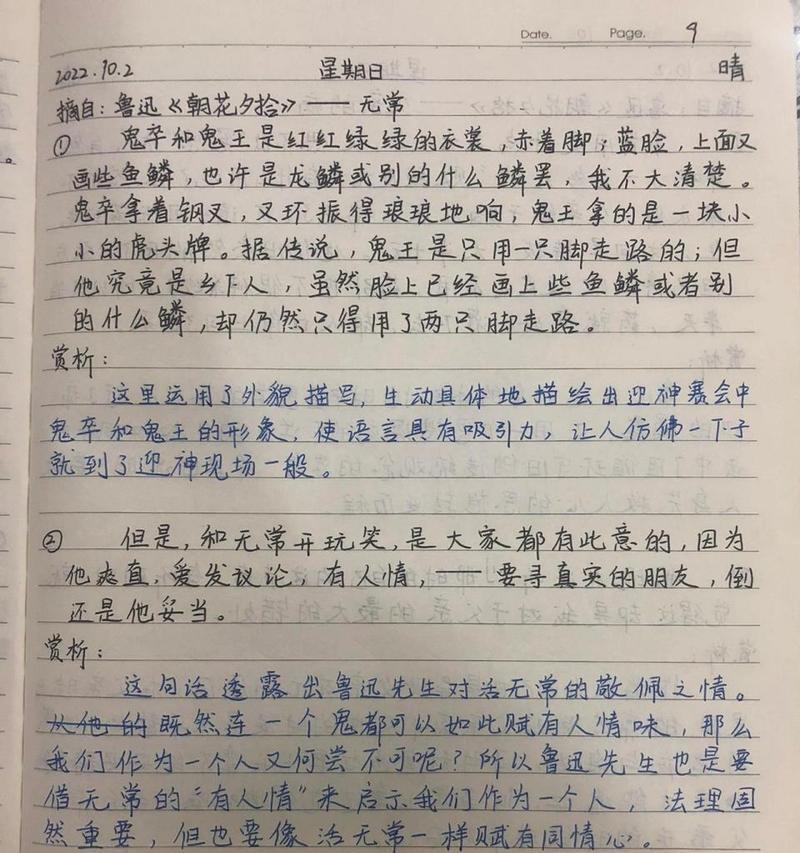 Date. Page. 9
2022.10.2 星期日 晴
摘自：鲁迅《朝花夕拾》——无常
① 鬼卒和鬼王是红红绿绿的衣裳，赤着脚；蓝脸，上面又
画些鱼鳞，也许是龙鳞或别的什么鳞罢，我不大清楚。
鬼卒拿着钢叉，叉环振得琅琅地响，鬼王拿的是一块小
小的虎头牌。据传说，鬼王是只用一只脚走路的；但
他究竟是乡下人，虽然脸上已经画上些鱼鳞或者别
的什么鳞，却仍然只得用了两只脚走路。
赏析：
这里运用了外貌描写，生动具体地描绘出迎神赛会中
鬼卒和鬼王的形象，使语言具有吸引力，让人仿佛一下子
就到了迎神现场一般。
② 但是，和无常开玩笑，是大家都有此意的，因为
他爽直，爱发议论，有人情，——要寻真实的朋友，倒
还是他妥当。
赏析：
这句话透露出鲁迅先生对活无常的敬佩之情。
从他的既然连一个鬼都可以如此赋有人情味，那么
我们作为一个人又何尝不可呢？所以鲁迅先生也是要
借无常的“有人情”来启示我们作为一个人，法理固
然重要，但也要像活无常一样赋有同情心。